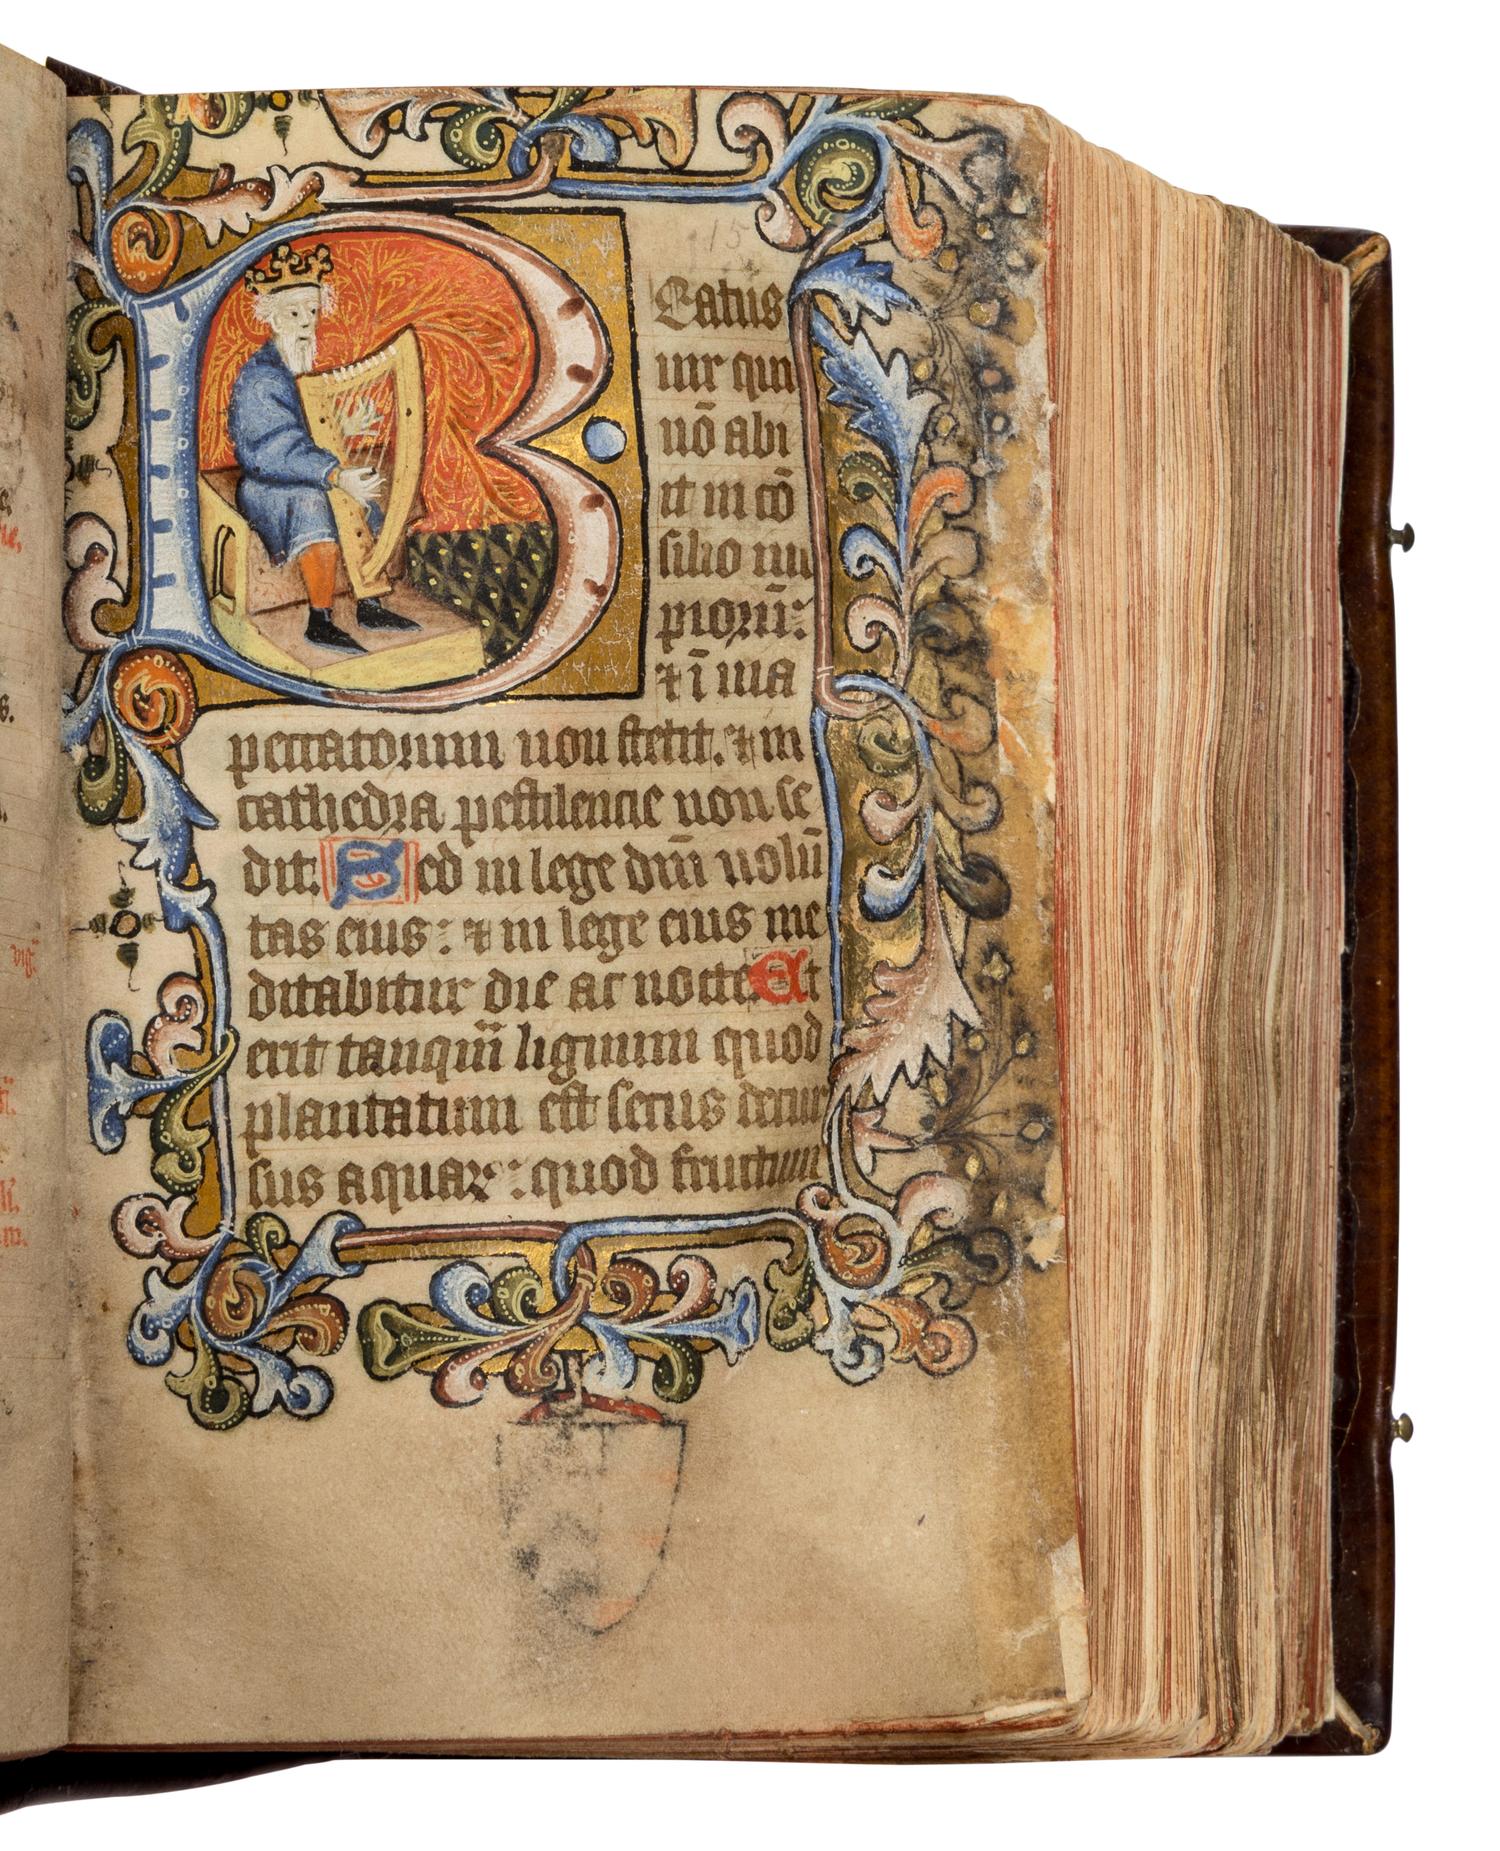 Beatus
uir qui
nō abi
it in cō
silio im
piorū:
⁊ ī uia
peccatorum non stetit. ⁊ in
cathedra pestilencie non se
dit. Sed in lege dn̄i uolū
tas eius: ⁊ in lege eius me
ditabitur die ac nocte Et
erit tanqm̄ lignum quod
plantatum est secus decur
sus aquaꝝ: quod fructum